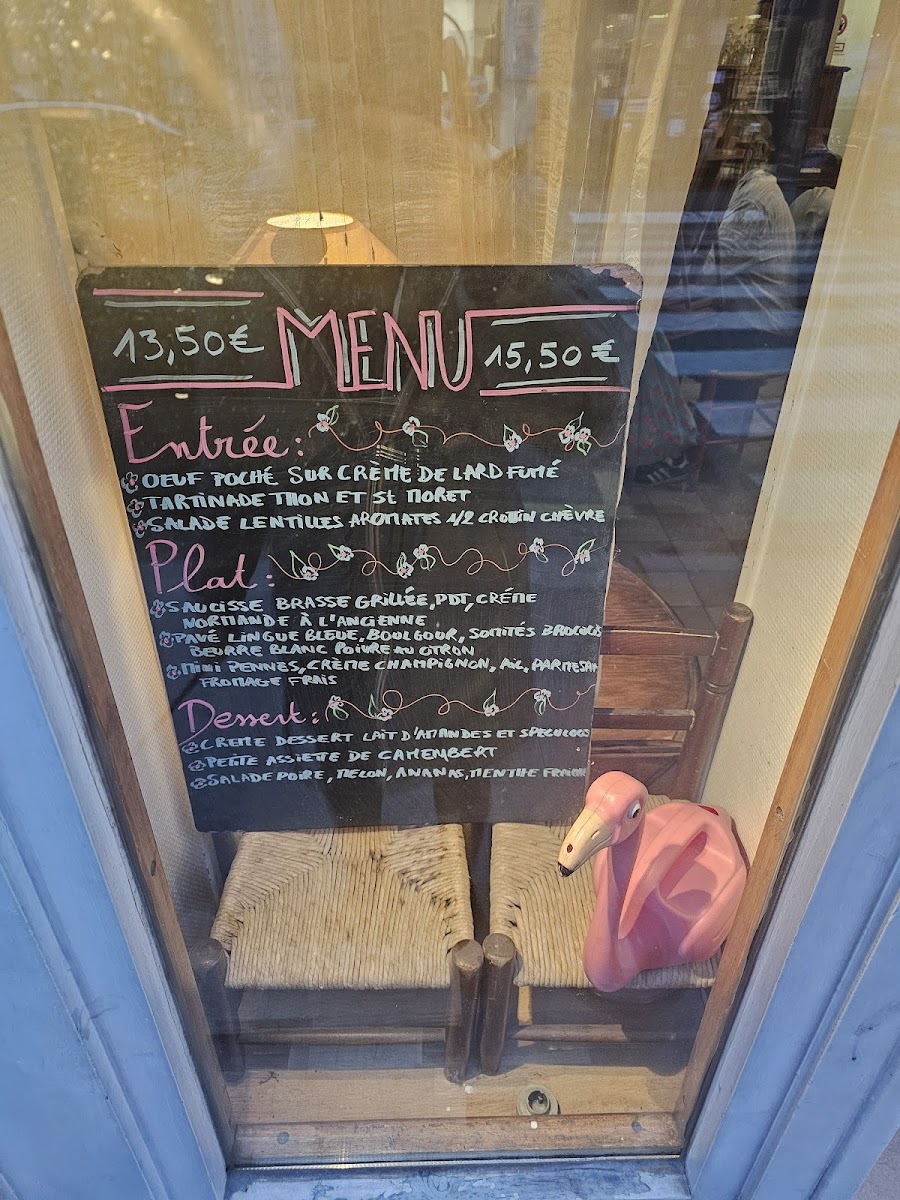 13,50€ MENU 15,50€
Entrée:
OEUF POCHÉ SUR CRÈME DE LARD FUMÉ
TARTINADE THON ET St MORET
SALADE LENTILLES AROMATES 1/2 CROTTIN CHÈVRE
Plat:
SAUCISSE BRASSE GRILLÉE, PDT, CRÉME
NORMANDE À L'ANCIENNE
PAVÉ LINGUE BLEUE, BOULGOUR, SOMITÉS BROCOLIS
BEURRE BLANC POIVRE AU CITRON
MINI PENNES, CRÈME CHAMPIGNON, AIL, PARMESAN
FROMAGE FRAIS
Dessert:
CREME DESSERT LAIT D'AMANDES ET SPECULOOS
PETITE ASSIETTE DE CAMEMBERT
SALADE POIRE, MELON, ANANAS, MENTHE FRAICHE